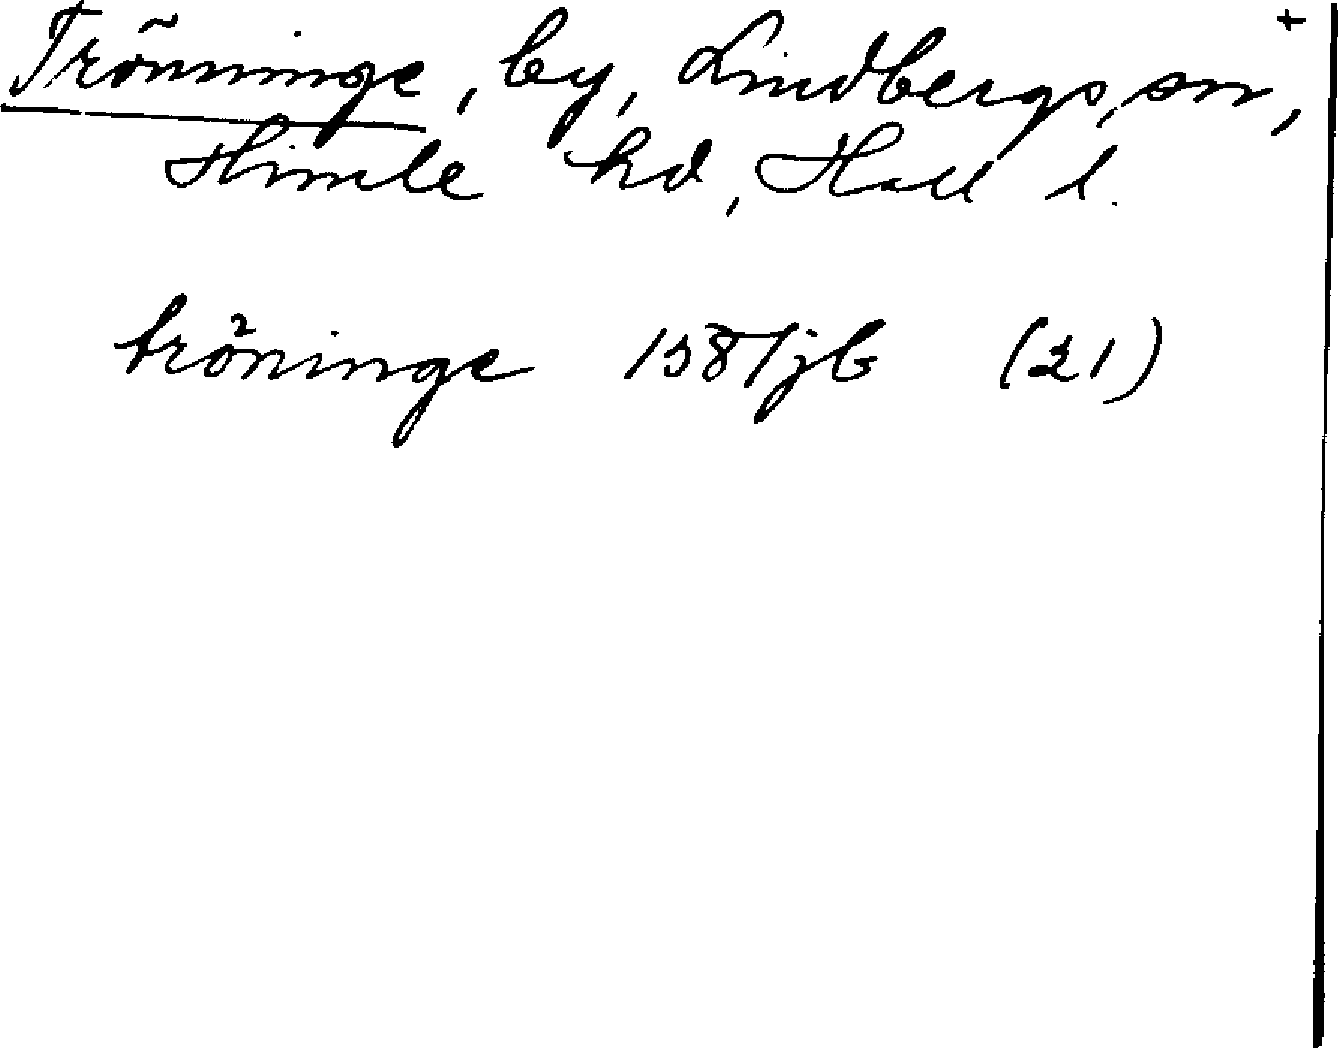 Trönninge, by, Lindbergs sn, +
Himle hd, Hall l.
tröninge 1587jb (21)